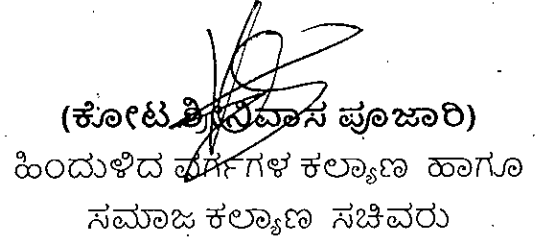 (ಕೋಟ ಶ್ರೀನಿವಾಸ ಪೂಜಾರಿ)
ಹಿಂದುಳಿದ ವರ್ಗಗಳ ಕಲ್ಯಾಣ ಹಾಗೂ
ಸಮಾಜ ಕಲ್ಯಾಣ ಸಚಿವರು